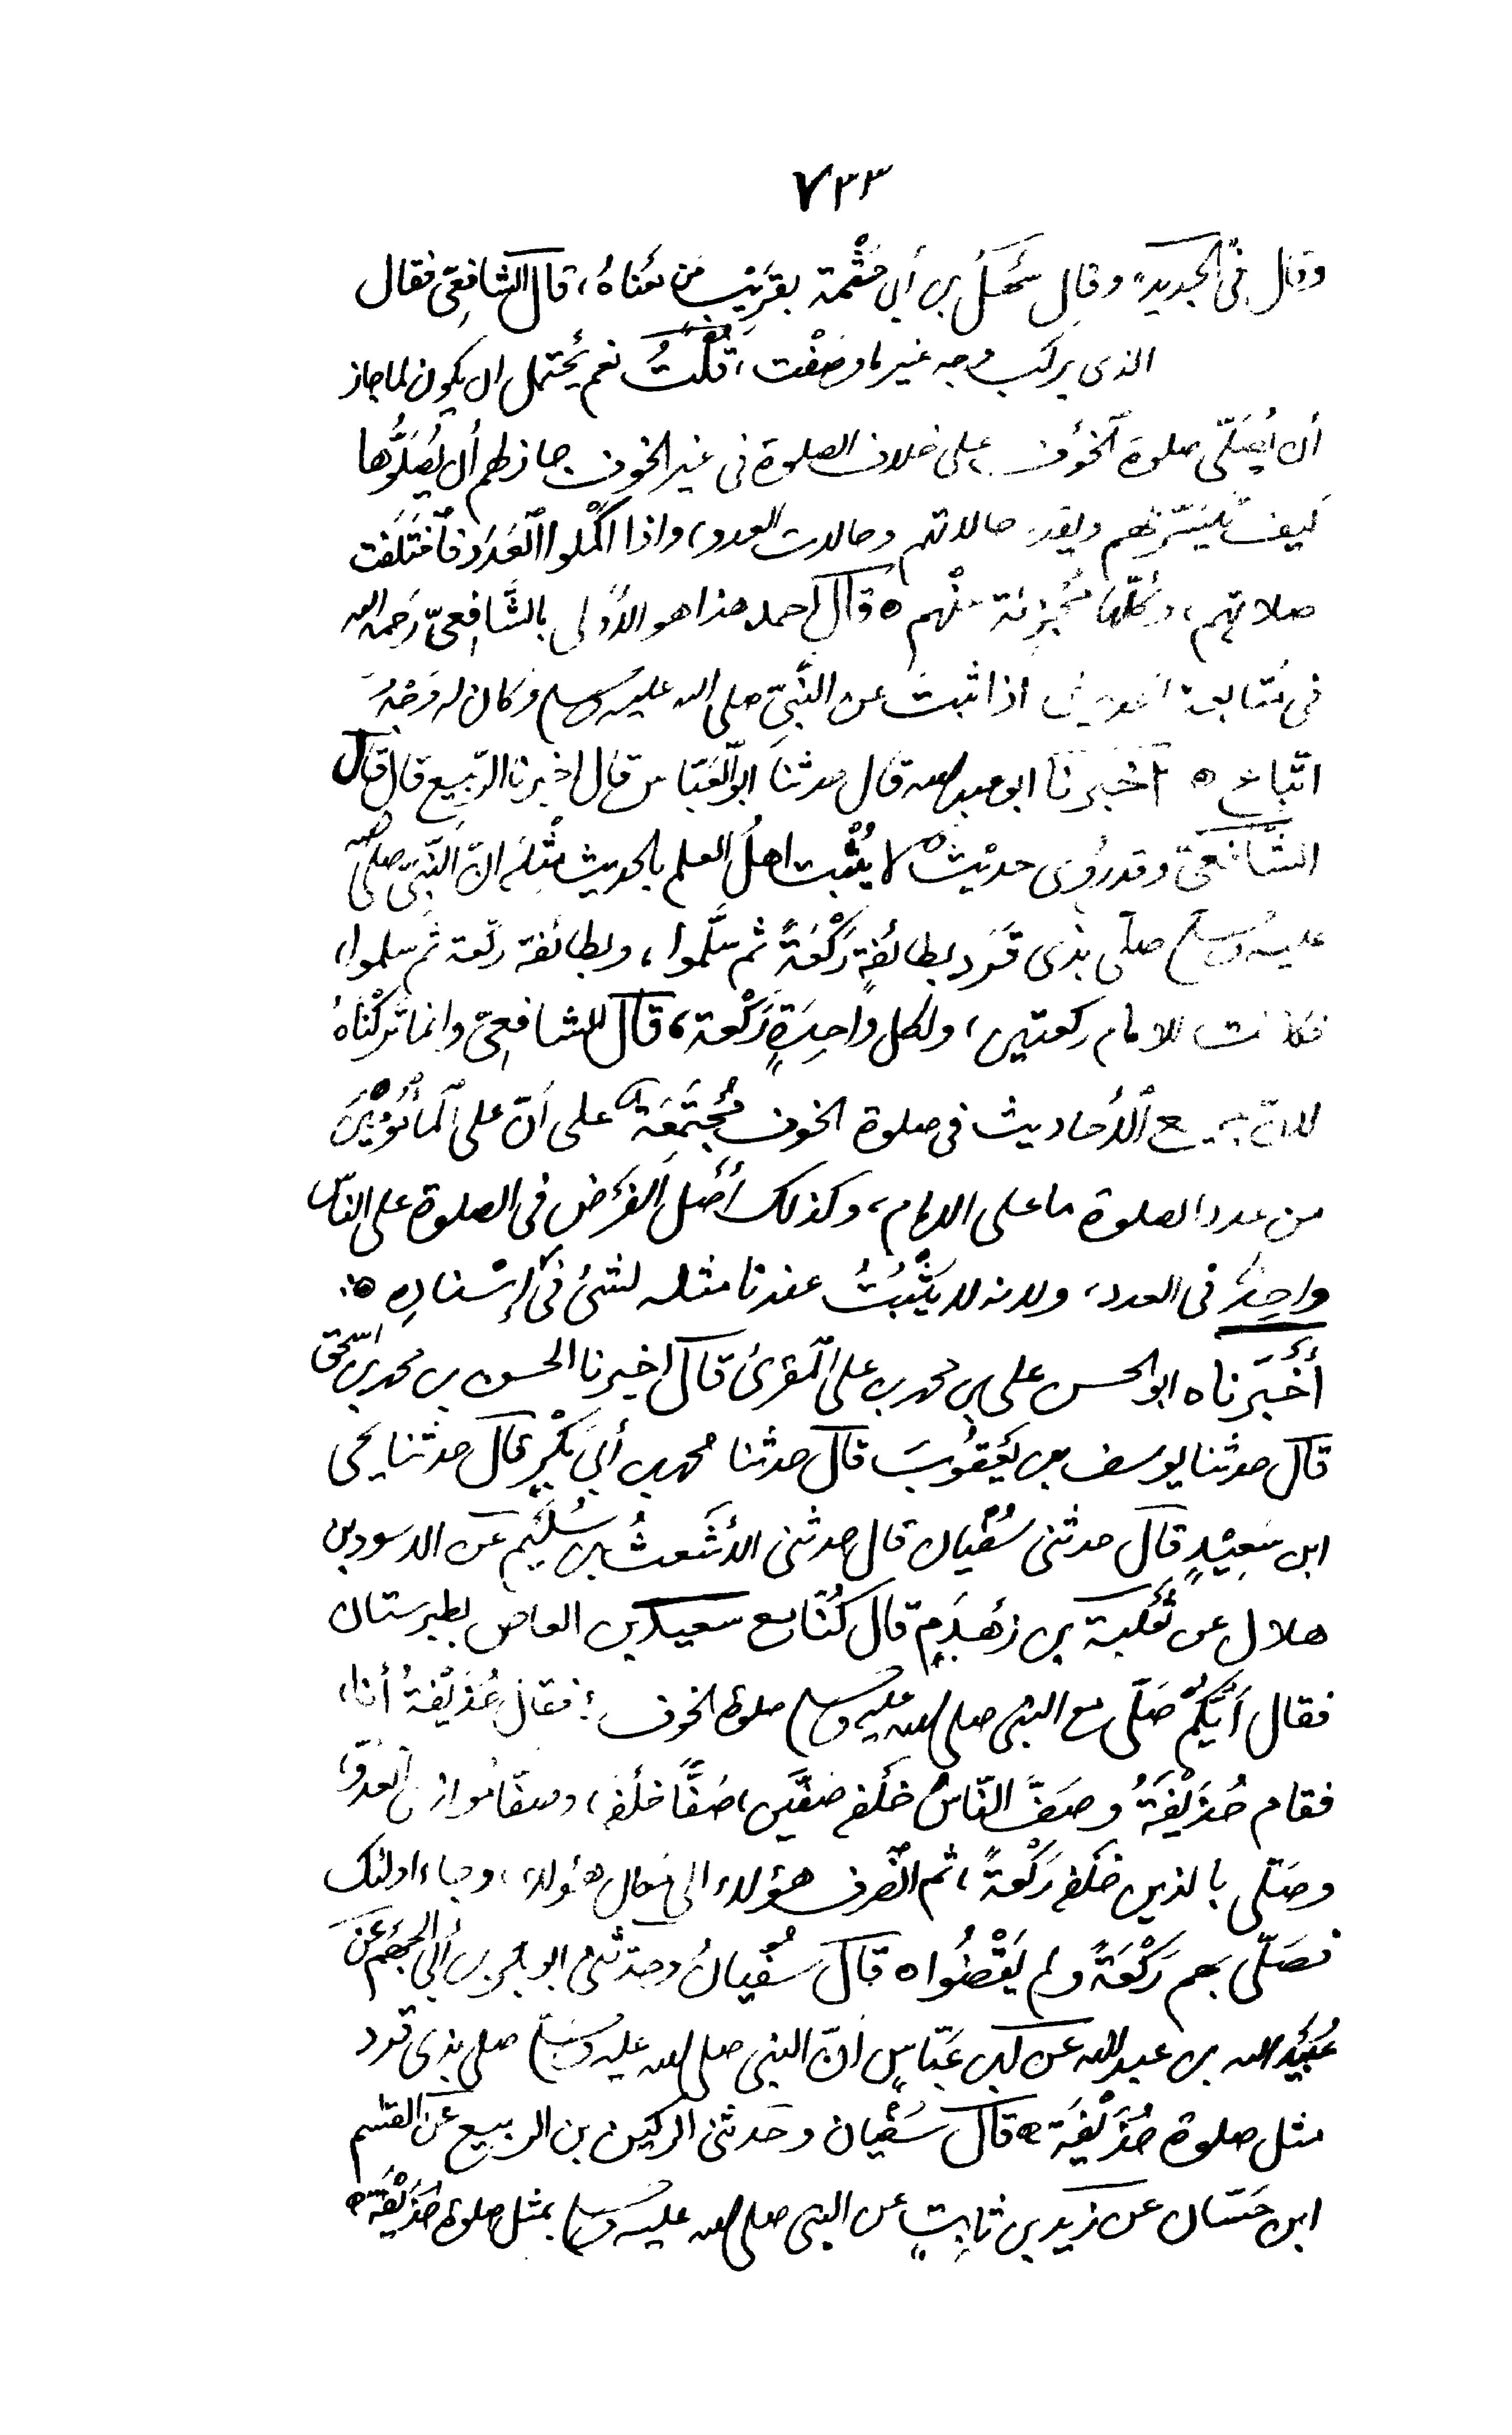 ٧٣٣
وقال في الجديد، وقال سَهْلُ بن أبي حَثْمة بقَرِيْبٍ مِن مَعْناهُ، قال الشافِعِيّ فقال
الذي يركب وجه غير ما وصَفْت، قُلْتُ نعم يُحْتمل ان يكون لما جاز
أن يُصَلّى صلوة الخَوْف على خلاف الصلوة في غير الخوف جاز لهم أن يُصَلُّوها
كيف تيَسّر لهم وبقدر حالاتهم وحالات العدو، واذا اكْملوا الْعَدَد فاخْتَلَفت
صلاتهم، وكُلّها مُجْزِئة عنْهم ه قال احمد هذا هو الأَوْلى بالشَّافِعِيّ رَحمه الله
في مُتابعة الحديث اذا ثبتَ عن النَّبِيّ صلى الله عليه وسلم وكان له وَجْهُ
اتّباع ه أَخْبَرنَا ابو عبد الله قال حدثنَا ابو الْعَبّاس قال اخبرنا الرّبيع قال قال
الشَّافعيّ وقد رُوِى حديْثٌ لا يُثْبت اهلُ العلم بالحديث مِثْلَه انّ النَّبِيّ صلى الله
عليه وسلم صلّى بذى قَرَد بطائفةٍ رَكْعَةً ثم سَلَّموا، وبطائفة ركعة ثم سلموا،
فكانت للامام ركعتين، ولكل واحِدَةٍ رَكْعة، قال الشافعِيّ وانما تركْناهُ
لانّ جميع الأَحاديث في صلوة الخوف مُجْتَمِعَةٌ على اَنّ على الْمأْمُوْمِيْنَ
من عدد الصلوة ما على الامام، وكذلك أَصْل الفَرْض في الصلوة على الناس
واحِدٌ في العدد، ولانه لا يَثْبُتُ عندنا مثله لشئ في إسْنادِهِ ه
أَخْبَرَناه ابو الحسن على بن محمد بن على الْمقرئ قال اخبرنا الحسن بن محمد بن اسْحٰق
قال حدثنا يوسف بن يَعْقُوبَ قال حدثنا محمد بن أبي بَكْرٍ قال حدثنا يحيى
ابن سَعِيْدٍ قال حدثنى سُفْيان قال حدثنى الأَشْعثُ بن سُلَيْم عَن الاسود بن
هلال عن ثَعْلبة بن زَهْدَمٍ قال كُنّا مع سعيد بن العاص بطبرستان
فقال اَيّكُمْ صَلّى مع النبى صلى الله عليه وسلم صلوة الخوف؛ فقال حُذَيْفةُ أنا،
فقام حُذَيْفَةُ وصَفَّ النّاسُ خَلْفه صَفَّيْن، صَفًّا خَلْفَه، وصفًّا مُوازى العَدُوّ،
وصَلّى بالذين خلْفه رَكْعةً، ثم انْصَرف هؤلاء الى مَكان هٰؤلاء، وجاء اولئك
فصَلّى بهم رَكْعَةً ولم يَقْضُوا ه قال سُفْيانُ وحدّثنى ابو بكر بن أبي الجَهْم عَن
عُبَيْد الله بن عبد الله عن ابن عَبّاسٍ اَنّ النبى صلى الله عليه وسلم صلى بذى قرد
مثل صلوة حُذَيْفَة ه قال سُفْيان وحدثنى الركين بن الربيع عن القٰسم
ابن حَسّان عن زيد بن ثابِتٍ عن النبى صلى الله عليه وسلم بمثل صلوة حُذَيْفَة ه